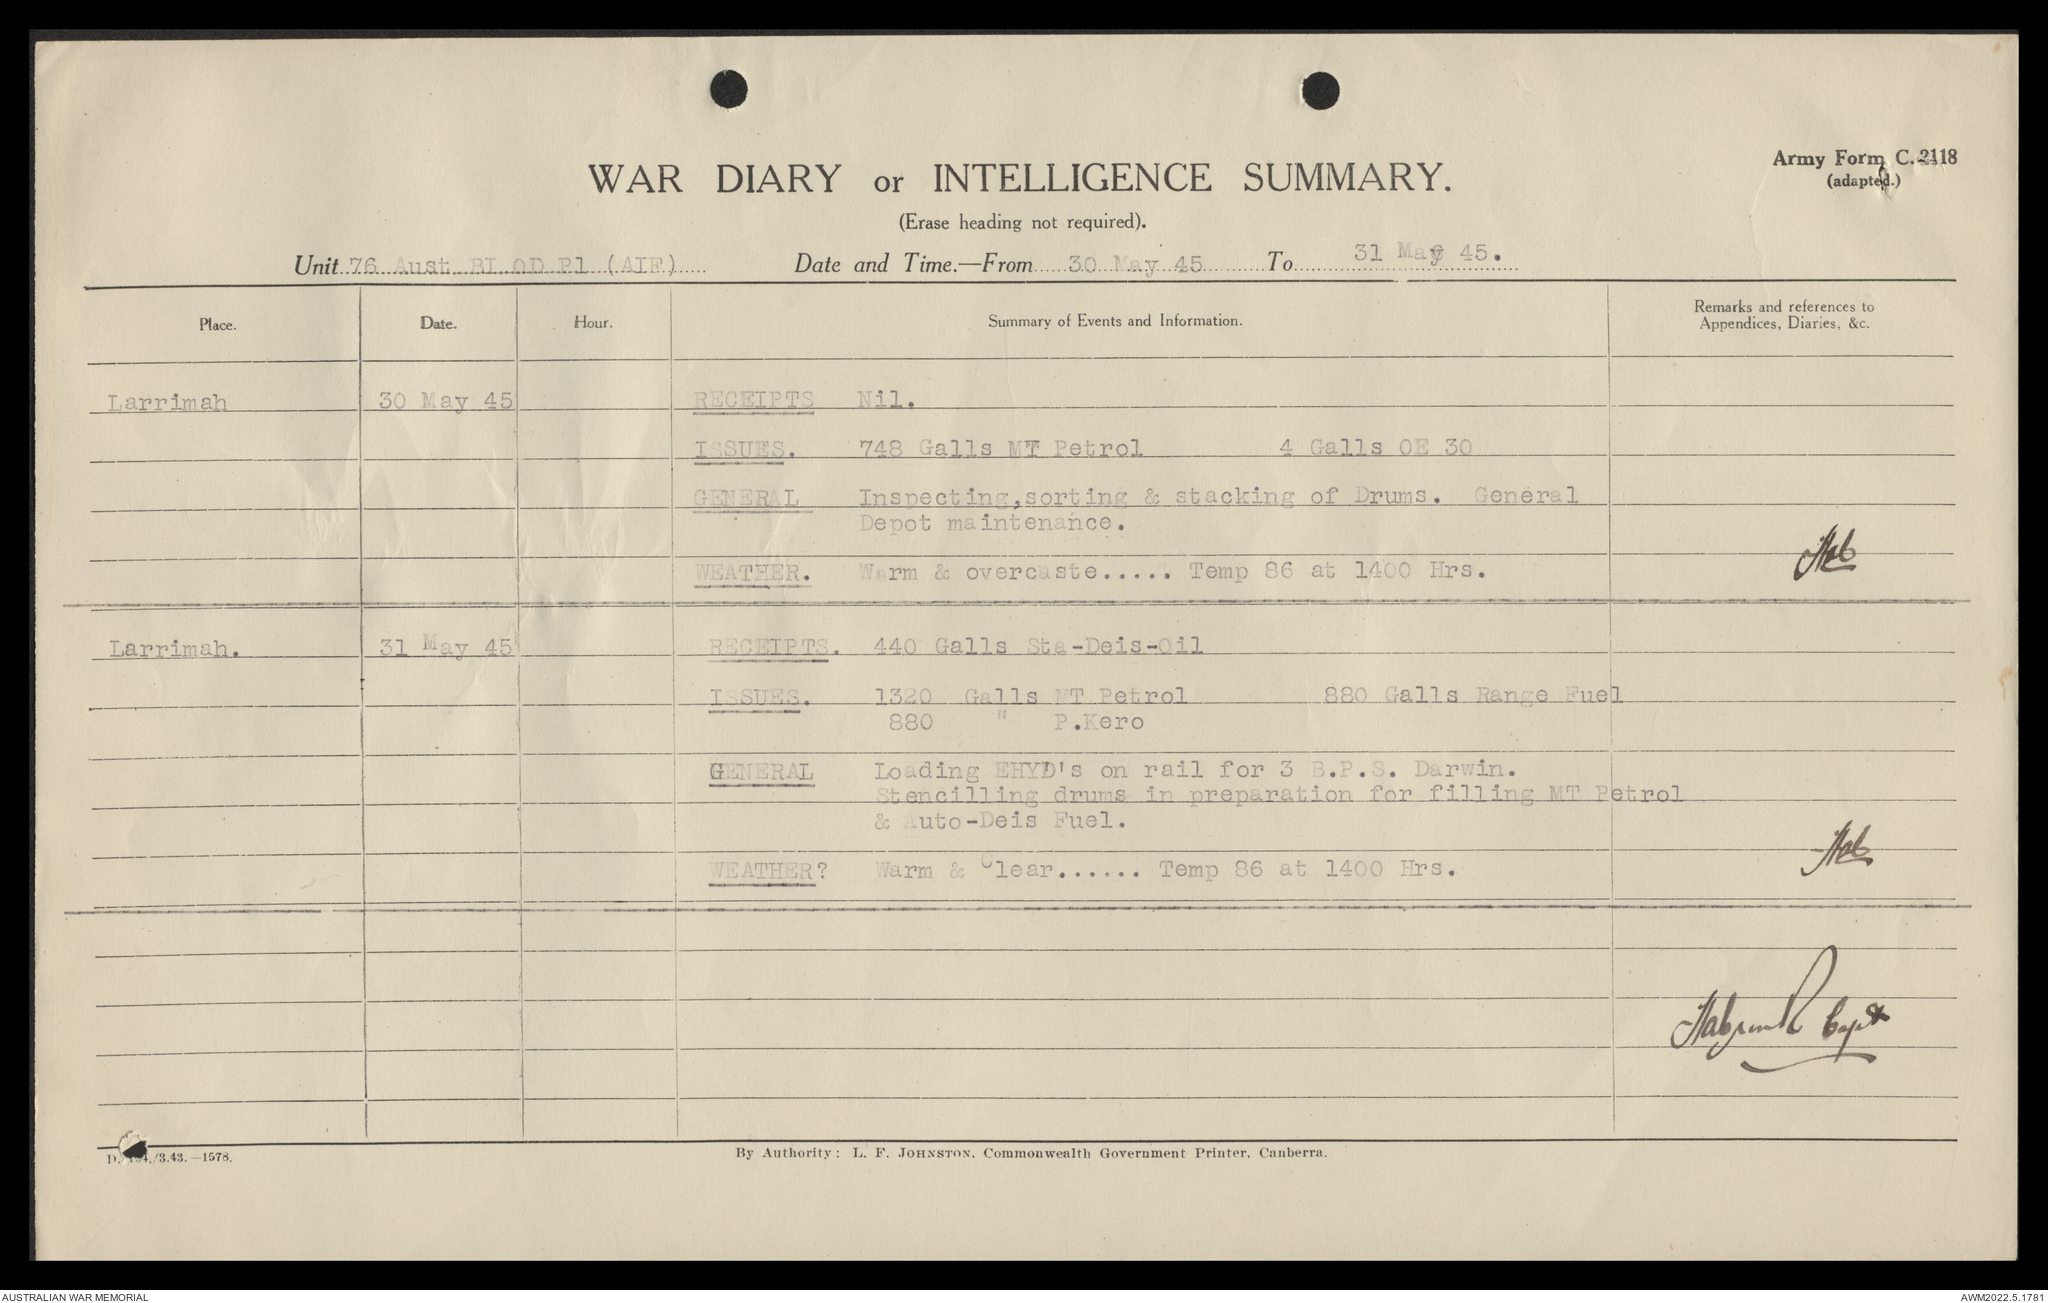 Army Form C. 2118
(adapted.)
WAR DIARY or INTELLIGENCE SUMMARY.
(Erase heading not required).
Unit 76 Aust BI OD Pl (AIF) Date and Time.—From 30 May 45 To 31 May 45.
Place. Date. Hour. Summary of Events and Information. Remarks and references to
Appendices, Diaries, &c.
Larrimah 30 May 45 RECEIPTS Nil.
ISSUES. 748 Galls MT Petrol 4 Galls OE 30
GENERAL Inspecting,sorting & stacking of Drums. General
Depot maintenance.
WEATHER. Warm & overcaste..... Temp 86 at 1400 Hrs.
Larrimah. 31 May 45 RECEIPTS. 440 Galls Sta-Deis-Oil
ISSUES. 1320 Galls MT Petrol 880 Galls Range Fuel
880 " P.Kero
GENERAL Loading EHYD's on rail for 3 B.P.S. Darwin.
Stencilling drums in preparation for filling MT Petrol
& Auto-Deis Fuel.
WEATHER? Warm & Clear...... Temp 86 at 1400 Hrs.
Capt
/3.43.—1578.
By Authority: L. F. JOHNSTON, Commonwealth Government Printer, Canberra.
AUSTRALIAN WAR MEMORIAL
AWM2022.5.1781